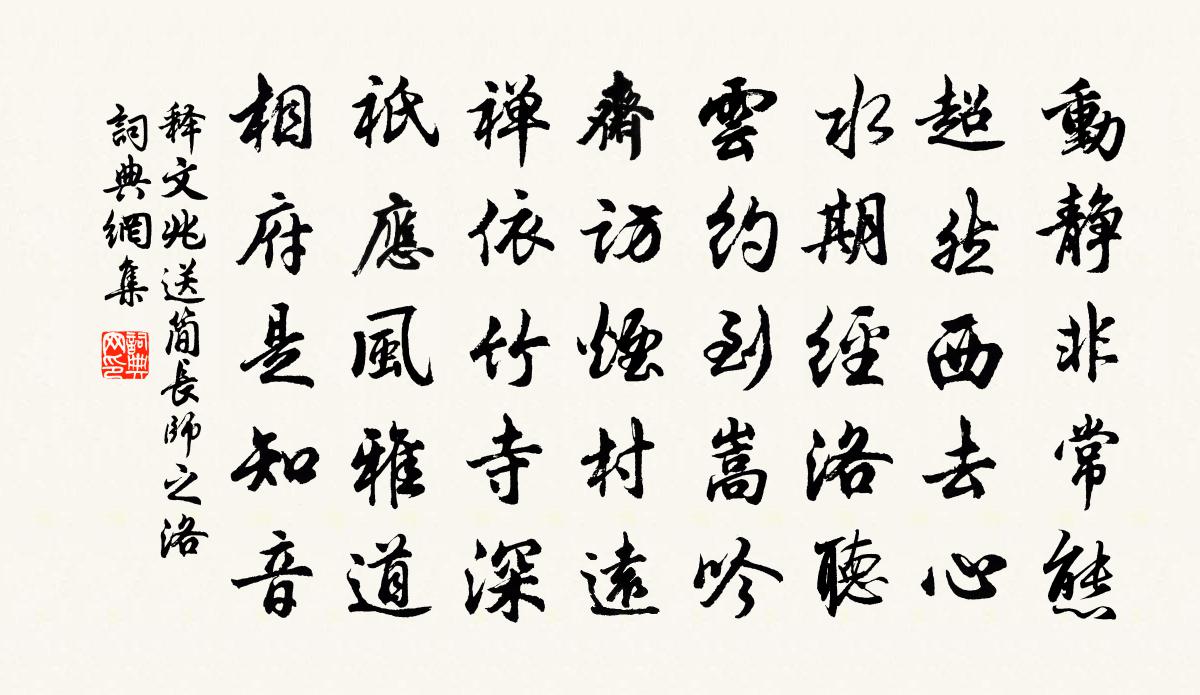 動靜非常態
超然西去心
水期經洛聽
雲約到嵩吟
齋訪煙村遠
禅依竹寺深
祇應風雅道
相府是知音
释文兆送簡長師之洛
詞典網集
詞典
网印